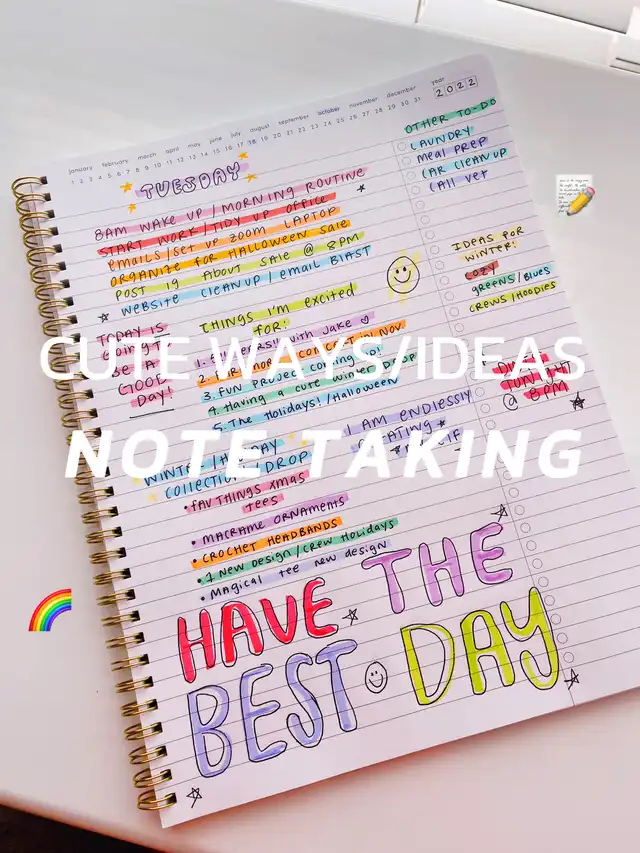 year
2022
january february march april may june july august september october november december
1 2 3 4 5 6 7 8 9 10 11 12 13 14 15 16 17 18 19 20 21 22 23 24 25 26 27 28 29 30 31
TUESDAY
8AM WAKE UP/MORNING ROUTINE
START WORK/TIDY UP OFFICE
EMAILS/SET UP ZOOM LAPTOP
ORGANIZE FOR HALLOWEEN SALE
POST IG ABOUT SALE @ 8PM
WEBSITE CLEANUP/EMAIL BLAST
OTHER TO-DO
LAUNDRY
MEAL PREP
CAR CLEAN UP
CALL VET
IDEAS FOR
WINTER:
COZY
GREENS/BLUES
CREWS/HOODIES
TODAY IS
GOING TO
BE A
GOOD
DAY!
THINGS I'M EXCITED
FOR:
with Jake
CONCERT IN NOV.
3. FUN PROJECT coming up!
4. Having a cute winter DROP
5. The Holidays!/Halloween
CUTE WAYS/IDEAS
TONIGHT
@ 8PM
I AM ENDLESSLY
NOTE TAKING
WINTER/
COLLECTION DROP
• FAV THINGS XMAS
TEES
• MACRAME ORNAMENTS
• CROCHET HEADBANDS
• 7 New Design/Crew Holidays
• Magical tee new design
HAVE THE
BEST DAY